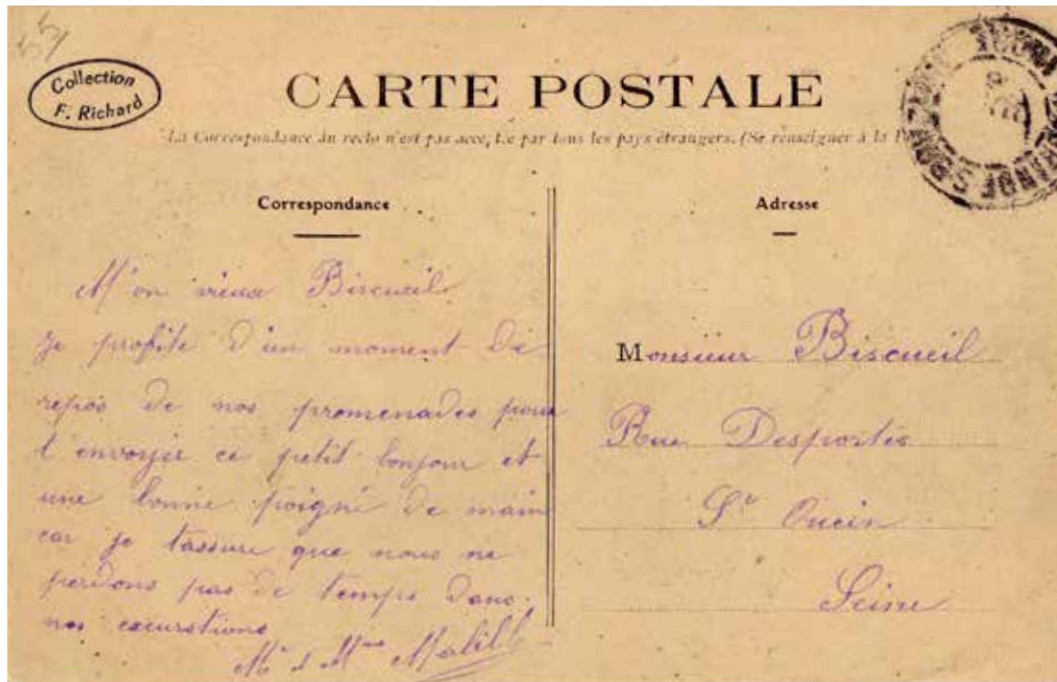 55
Collection
F. Richard
CARTE POSTALE
La Correspondance au recto n'est pas acceptée par tous les pays étrangers. (Se renseigner à la
Correspondance
M'on vieux Biscueil
Je profite d'un moment de
repos de nos promenades pour
t'envoyer ce petit bonjour et
une bonne poigné de main
car je tassure que nous ne
perdons pas de temps dans
nos excurstions
Mr et Mme
Adresse
Monsieur Biscueil
Rue Desportes
St Ouein
Seine